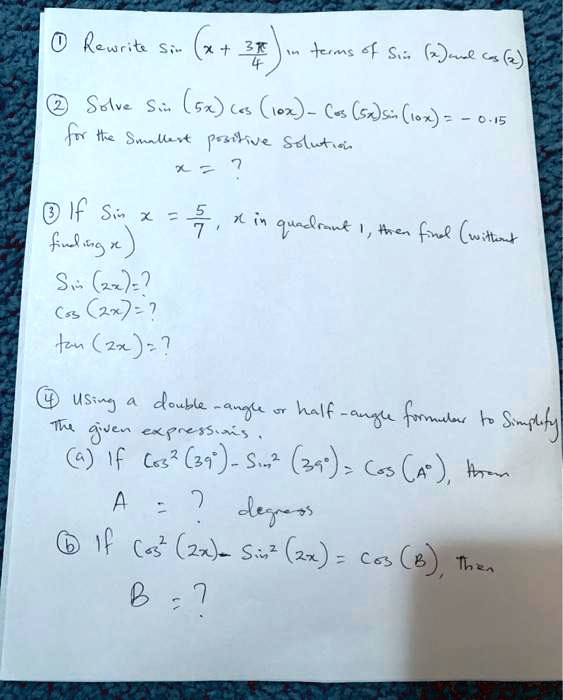 ① Rewrite Sin (x + 3π/4) in terms of Sin (x) and cos (x)
② Solve Sin (5x) cos (10x) - Cos (5x) sin (10x) = - 0.15
for the Smallest positive Solution
x = ?
③ If Sin x = 5/7, x in quadrant 1, then find (without
finding x)
Sin (2x) = ?
Cos (2x) = ?
tan (2x) = ?
④ Using a double-angle or half-angle formular to Simplify
The given expressions.
(a) If Cos² (39°) - Sin² (39°) = Cos (A°), then
A = ? degrees
ⓑ If Cos² (2x) - Sin² (2x) = Cos (B), Then
B = ?